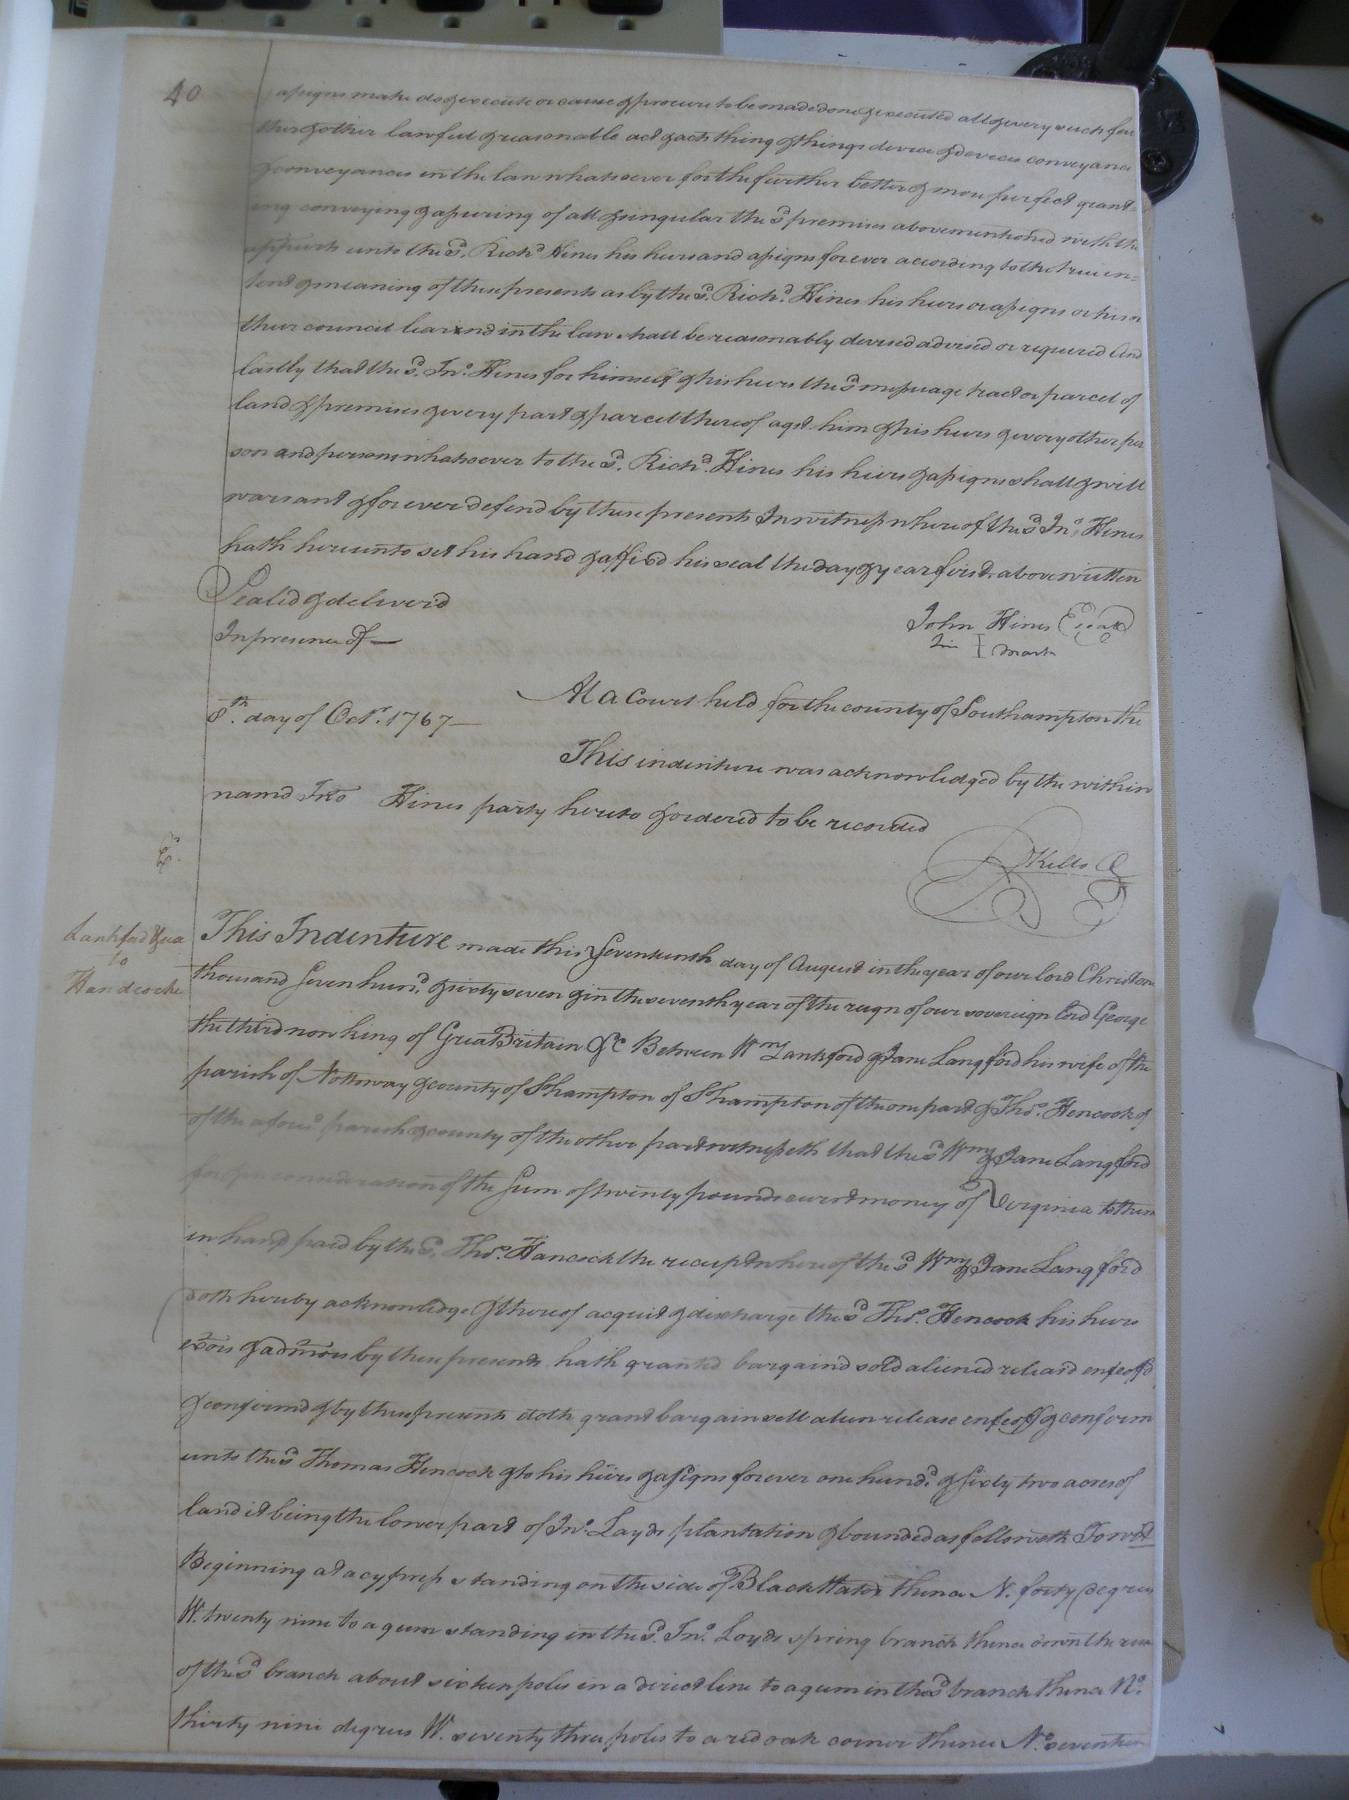 40
assigns make do & execute or cause & procure to be made done & executed all & every such fur
ther & other lawful & reasonable act & acts thing & things device & devices conveyance
& conveyances in the law whatsoever for the further better & more perfect grant-
ing conveying & assuring of all & singular the sd. premises abovementioned with the
appurts unto the sd. Richd. Hines his heirs and assigns forever according to the true in=
tent & meaning of these presents as by the sd. Richd. Hines his heirs or assigns or his or
their council learnd in the law shall be reasonably devised advised or required And
lastly that the sd. Jno. Hines for himself & his heirs the sd messuage tract or parcel of
land & premises & every part & parcel thereof agst him & his heirs & every other per
son and persons whatsoever to the sd. Richd. Hines his heirs & assigns shall & will
warrant & forever defend by these presents In witness whereof the sd Jno. Hines
hath hereunto set his hand & affixd his seal the day & year first above written
Sealed & deliverd
In presence of —
John Hines (Seal)
his I mark
At a Court held for the county of Southampton the
8th. day of Octr. 1767 —
This indenture was acknowledged by the within
namd Jno Hines party hereto & ordered to be recorded
Ed.
R Kello C
Lankford & ux
to
Handcocke
This Indenture made this Seventeenth day of August in the year of our lord Christ one
thousand Seven hund. & sixty seven & in the seventh year of the reign of our sovereign lord George
the third now king of Great Britain &c Between Wm. Lankford & Jane Langford his wife of the
parish of Nottoway & county of Shampton of Shampton of the one part & Thos. Hencock of
of the afores. parish & county of the other part witnesseth that the sd Wm. & Jane Langford
for & in consideration of the Sum of twenty pounds curt money of Virginia to them
in hand paid by the sd. Thos. Hancock the receipt whereof the sd Wm. & Jane Langford
doth hereby acknowledge & thereof acquit & discharge the sd Thos. Hencock his heirs
exors & admors by these presents hath granted bargaind sold aliened releasd enfeoffd
& confirmd & by these presents doth grant bargain sell alien release enfeoff & conform
unto the sd Thomas Hencock & to his heirs & assigns forever one hund. & sixty two acres of
land it being the lower part of Jno. Loyds plantation & bounded as followeth Towit
Beginning at a cypress standing on the side of Black Water thence N. forty degrees
W. twenty nine to a gum standing in the sd. Jno. Loyds spring branch thence down the run
of the sd branch about sixteen poles in a direct line to a gum in the sd branch thence No.
thirty nine degrees W. seventy three poles to a red oak corner thence No. seventeen